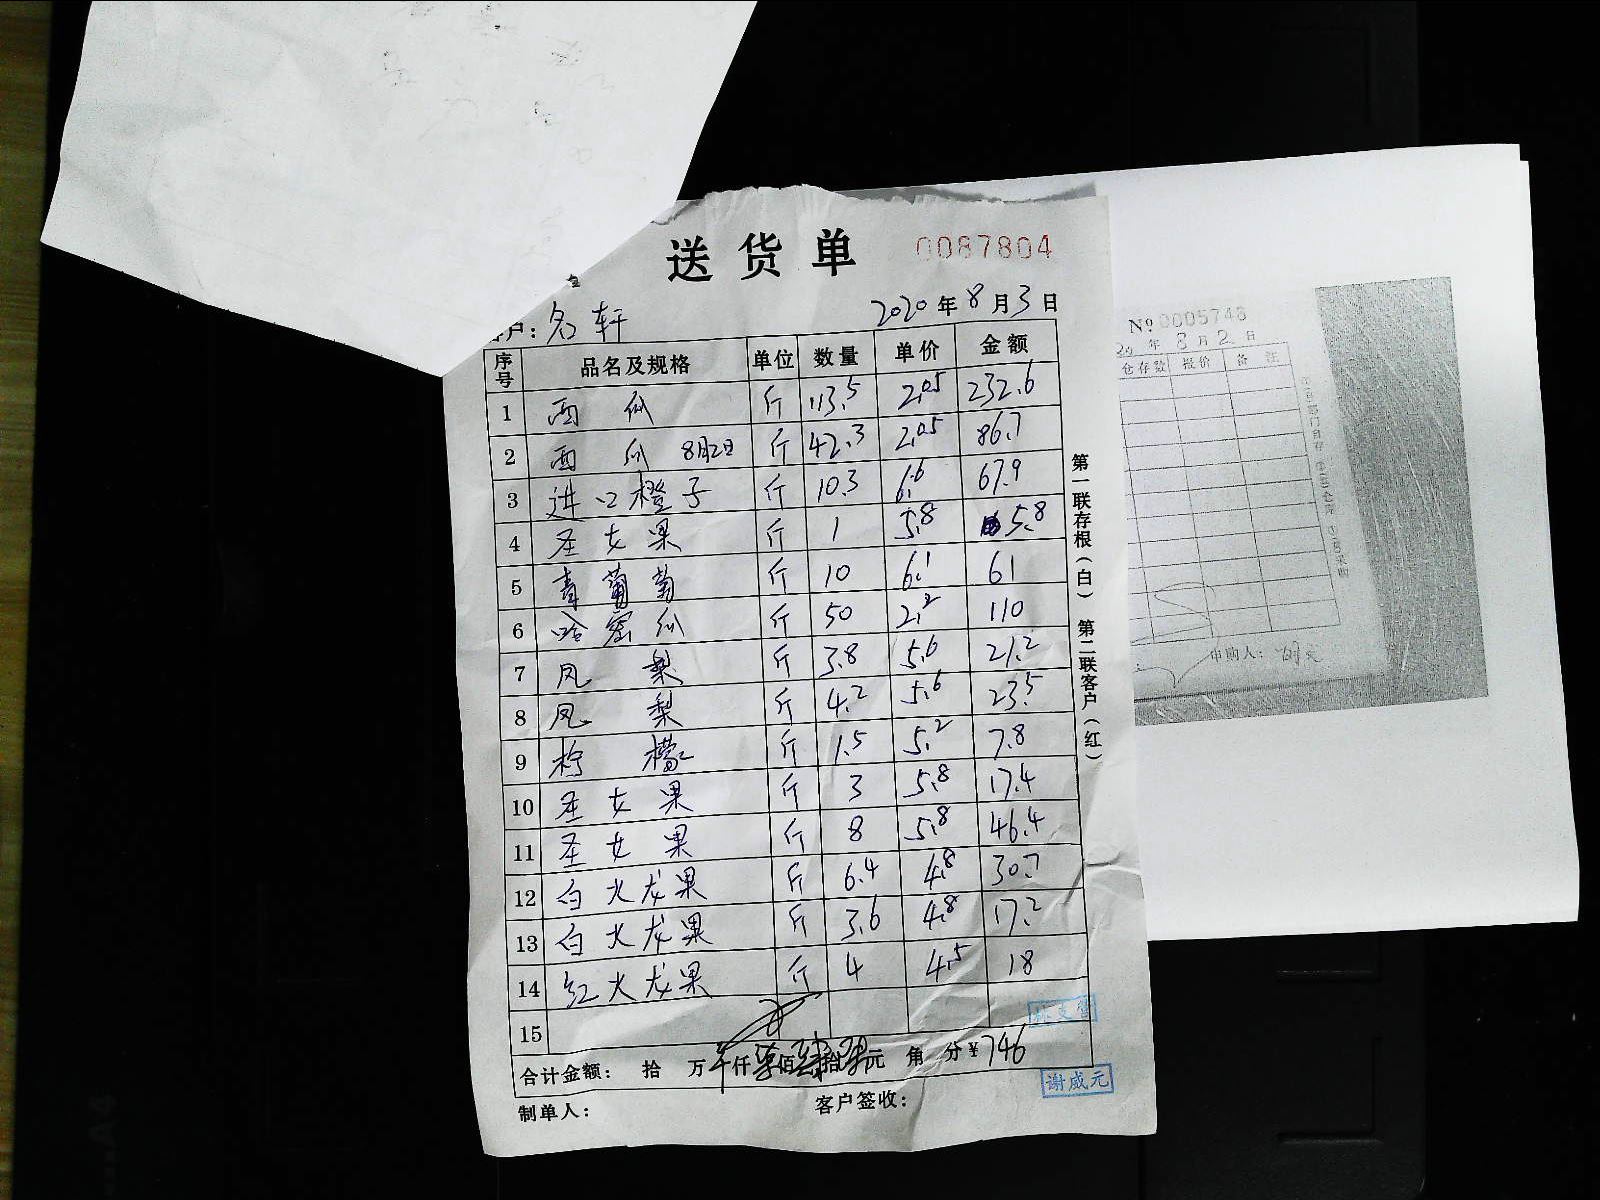 送货单 0087804
户：名轩 2020年8月3日
序号 品名及规格 单位 数量 单价 金额
1 西瓜 斤 113.5 2.05 232.6
2 西瓜 8月2日 斤 42.3 2.05 86.7
3 进口橙子 斤 10.3 6.6 67.9
4 圣女果 斤 1 5.8 5.8
5 青葡萄 斤 10 6.1 61
6 哈密瓜 斤 50 2.2 110
7 凤梨 斤 3.8 5.6 21.2
8 凤梨 斤 4.2 5.6 23.5
9 柠檬 斤 1.5 5.2 7.8
10 圣女果 斤 3 5.8 17.4
11 圣女果 斤 8 5.8 46.4
12 白火龙果 斤 6.4 4.8 30.7
13 白火龙果 斤 3.6 4.8 17.2
14 红火龙果 斤 4 4.5 18
15
合计金额： 拾 万 仟 柒佰肆拾陆元 角 分 ¥746
制单人： 客户签收：
谢威元
第一联存根（白） 第二联客户（红）
№0005748
年8月2日
仓存数 报价 备注
申购人：
A4